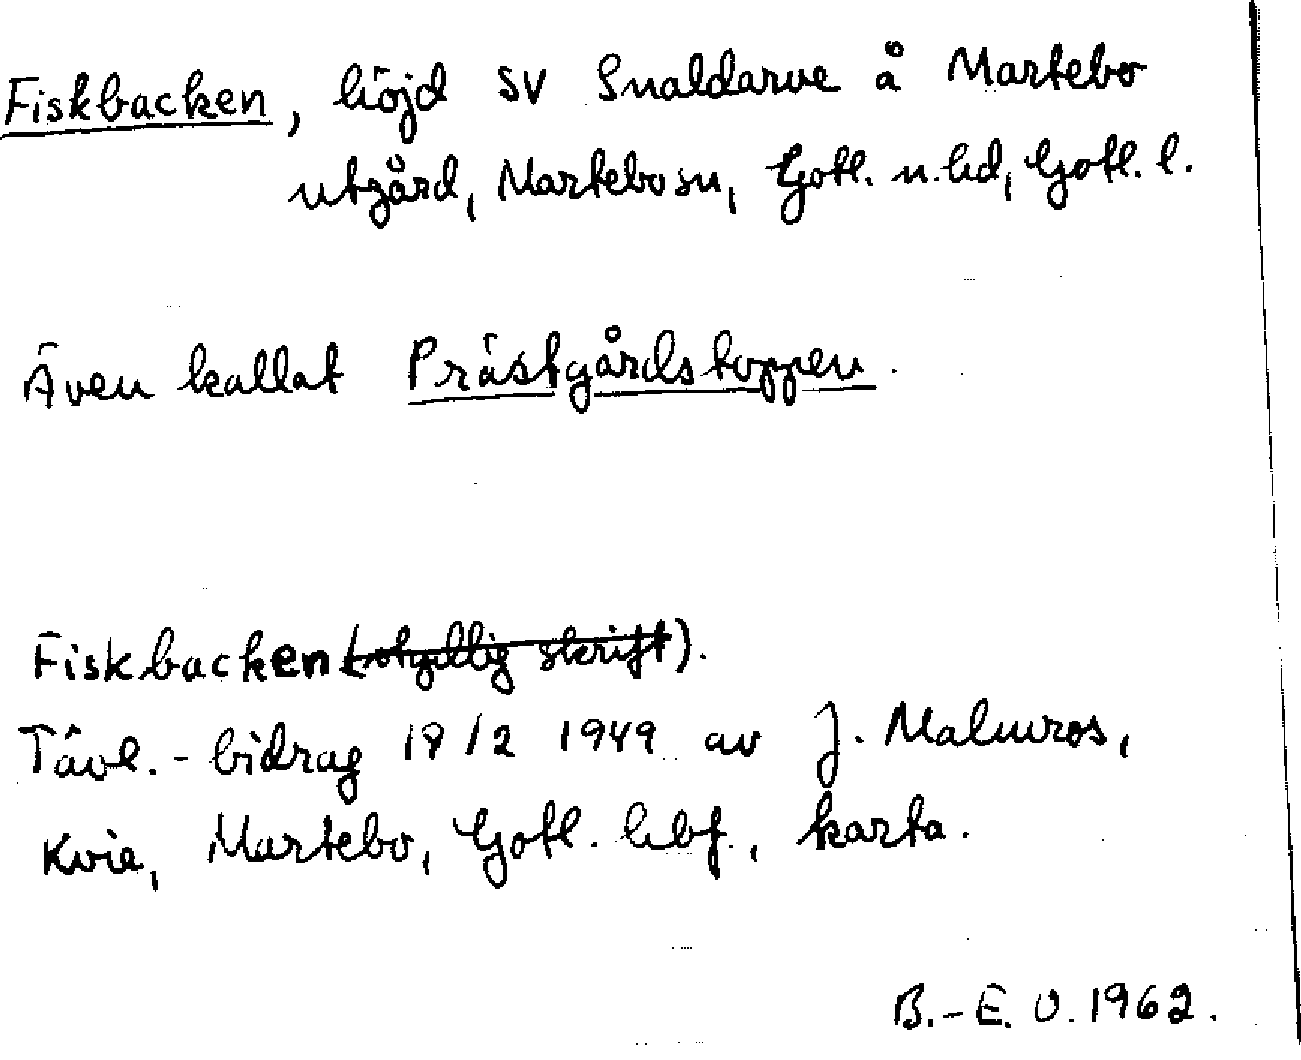 Fiskbacken, höjd SV Snaldarve å Martebo
utgård, Martebo sn, Gotl. n. hd, Gotl. l.
Även kallat Prästgårdstoppen.
Fiskbacken (otydlig skrift).
Tävl.-bidrag 18/2 1949 av J. Malmros,
Kvie, Martebo, Gotl. hbf., karta.
B.-E. O. 1962.